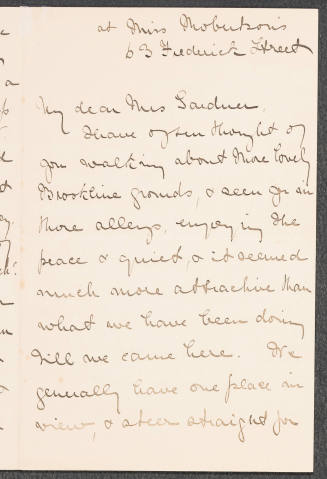 at Miss Robertson's
63 Frederick Street
My dear Mrs Gardner,
I have often thought of
you walking about those lovely
Brookline grounds, & seen you in
those alleys, enjoying the
peace & quiet, & it seemed
much more attractive than
what we have been doing
till we came here. We
generally have one place in
view, & steer straight for